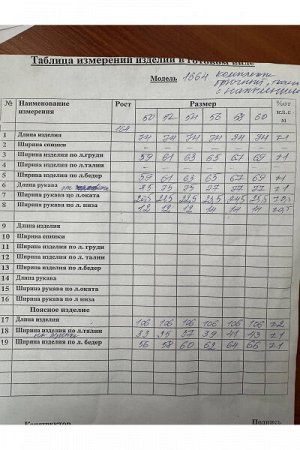 Таблица измерений изделия в готовом виде
Модель 1864 комплект
№ Наименование измерения Рост Размер
50 52 54 56 58 60
164
1 Длина изделия 74 74 74 74 74 74
2 Ширина спинки – – – – – –
3 Ширина изделия по л.груди 59 61 63 65 67 69
4 Ширина изделия по л.талии – – – – – –
5 Ширина изделия по л.бедер 59 61 63 65 67 69
6 Длина рукава
7 Ширина рукава по л.оката
8 Ширина рукава по л. низа 12 12 14 14 14
9 Длина изделия
10 Ширина спинки
11 Ширина изделия по л. груди
12 Ширина изделия по л. талии
13 Ширина изделия по л.бедер
14 Длина рукава
15 Ширина рукава по л.оката
16 Ширина рукава по л. низа
Поясное изделие
17 Длина изделия 106 106 106 106 106 106
18 Ширина изделия по л.талии 33 35 37 39 41 43
19 Ширина изделия по л. бедер 56 58 60 62 64 66
Конструктор Подпись